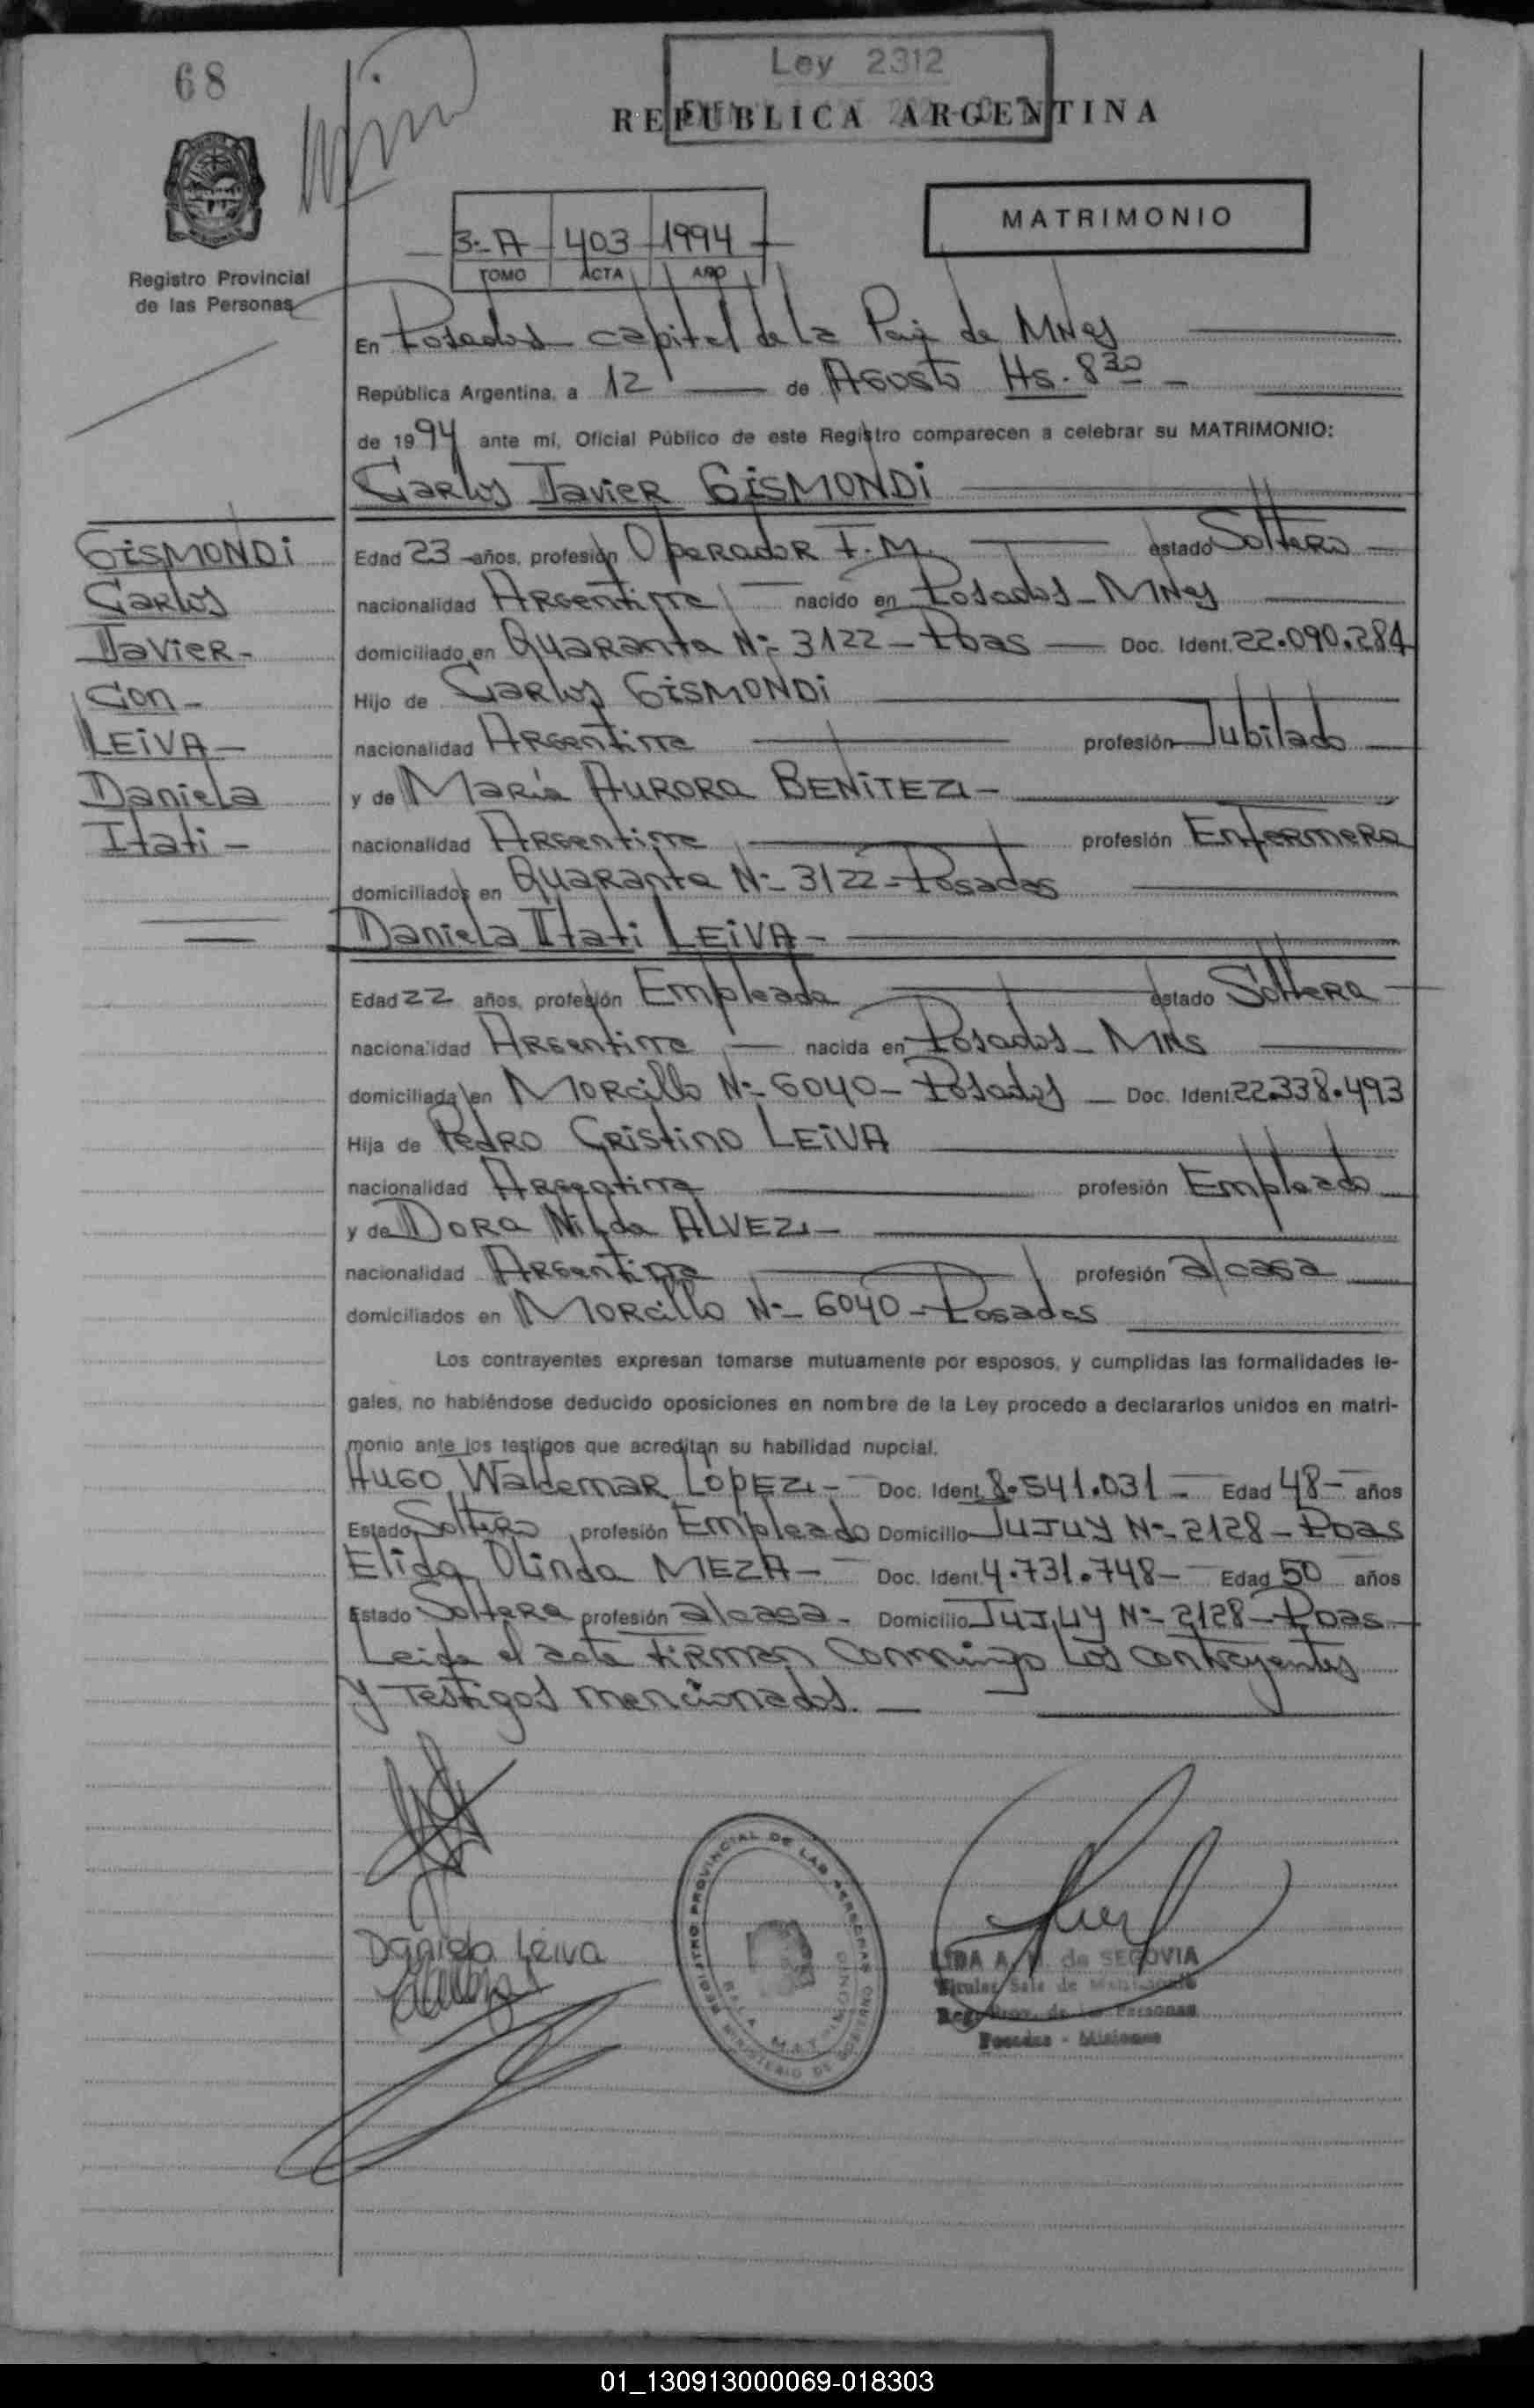 68
Ley 2312
REPUBLICA ARGENTINA
MATRIMONIO
3-A 403 1994
TOMO ACTA AÑO
Registro Provincial
de las Personas
En Posadas capital de la Pcia de MNes
República Argentina, a 12 de Agosto Hs. 8 30
de 1994 ante mí, Oficial Público de este Registro comparecen a celebrar su MATRIMONIO:
Carlos Javier GISMONDI
GISMONDI
Carlos
Javier-
Con-
LEIVA-
Daniela
Itati-
Edad 23 años, profesión Operador I.M. estado Soltero
nacionalidad Argentina nacido en Posadas-MNes
domiciliado en Quaranta Nº 3122-Pdas Doc. Ident. 22.090.284
Hijo de Carlos GISMONDI
nacionalidad Argentina profesión Jubilado
y de María AURORA BENITEZ-
nacionalidad Argentina profesión Enfermera
domiciliados en Quaranta Nº 3122-Posadas
Daniela Itati LEIVA-
Edad 22 años, profesión Empleada estado Soltera
nacionalidad Argentina nacida en Posadas-MNs
domiciliada en Morcillo Nº 6040-Posadas Doc. Ident. 22.338.493
Hija de Pedro Cristino LEIVA
nacionalidad Argentina profesión Empleado
y de DORA Nilda ALVEZ-
nacionalidad Argentina profesión a/casa
domiciliados en Morcillo Nº 6040-Posadas
Los contrayentes expresan tomarse mutuamente por esposos, y cumplidas las formalidades le-
gales, no habiéndose deducido oposiciones en nombre de la Ley procedo a declararlos unidos en matri-
monio ante los testigos que acreditan su habilidad nupcial.
Hugo Waldemar LOPEZ- Doc. Ident. 8.541.031 Edad 48 años
Estado Soltero profesión Empleado Domicilio JUJUY Nº 2128-Pdas
Elida Olinda MEZA- Doc. Ident. 4.731.748 Edad 50 años
Estado Soltera profesión a/casa- Domicilio JUJUY Nº 2128-Pdas
Leida el acta firman conmigo los contrayentes
y testigos mencionados.
Daniela Leiva
REGISTRO PROVINCIAL DE LAS PERSONAS
MINISTERIO DE GOBIERNO
SALA MATRIMONIO
LIDA A. de SEGOVIA
Titular Sala de Matrimonio
Reg. Prov. de las Personas
Posadas - Misiones
01_130913000069-018303